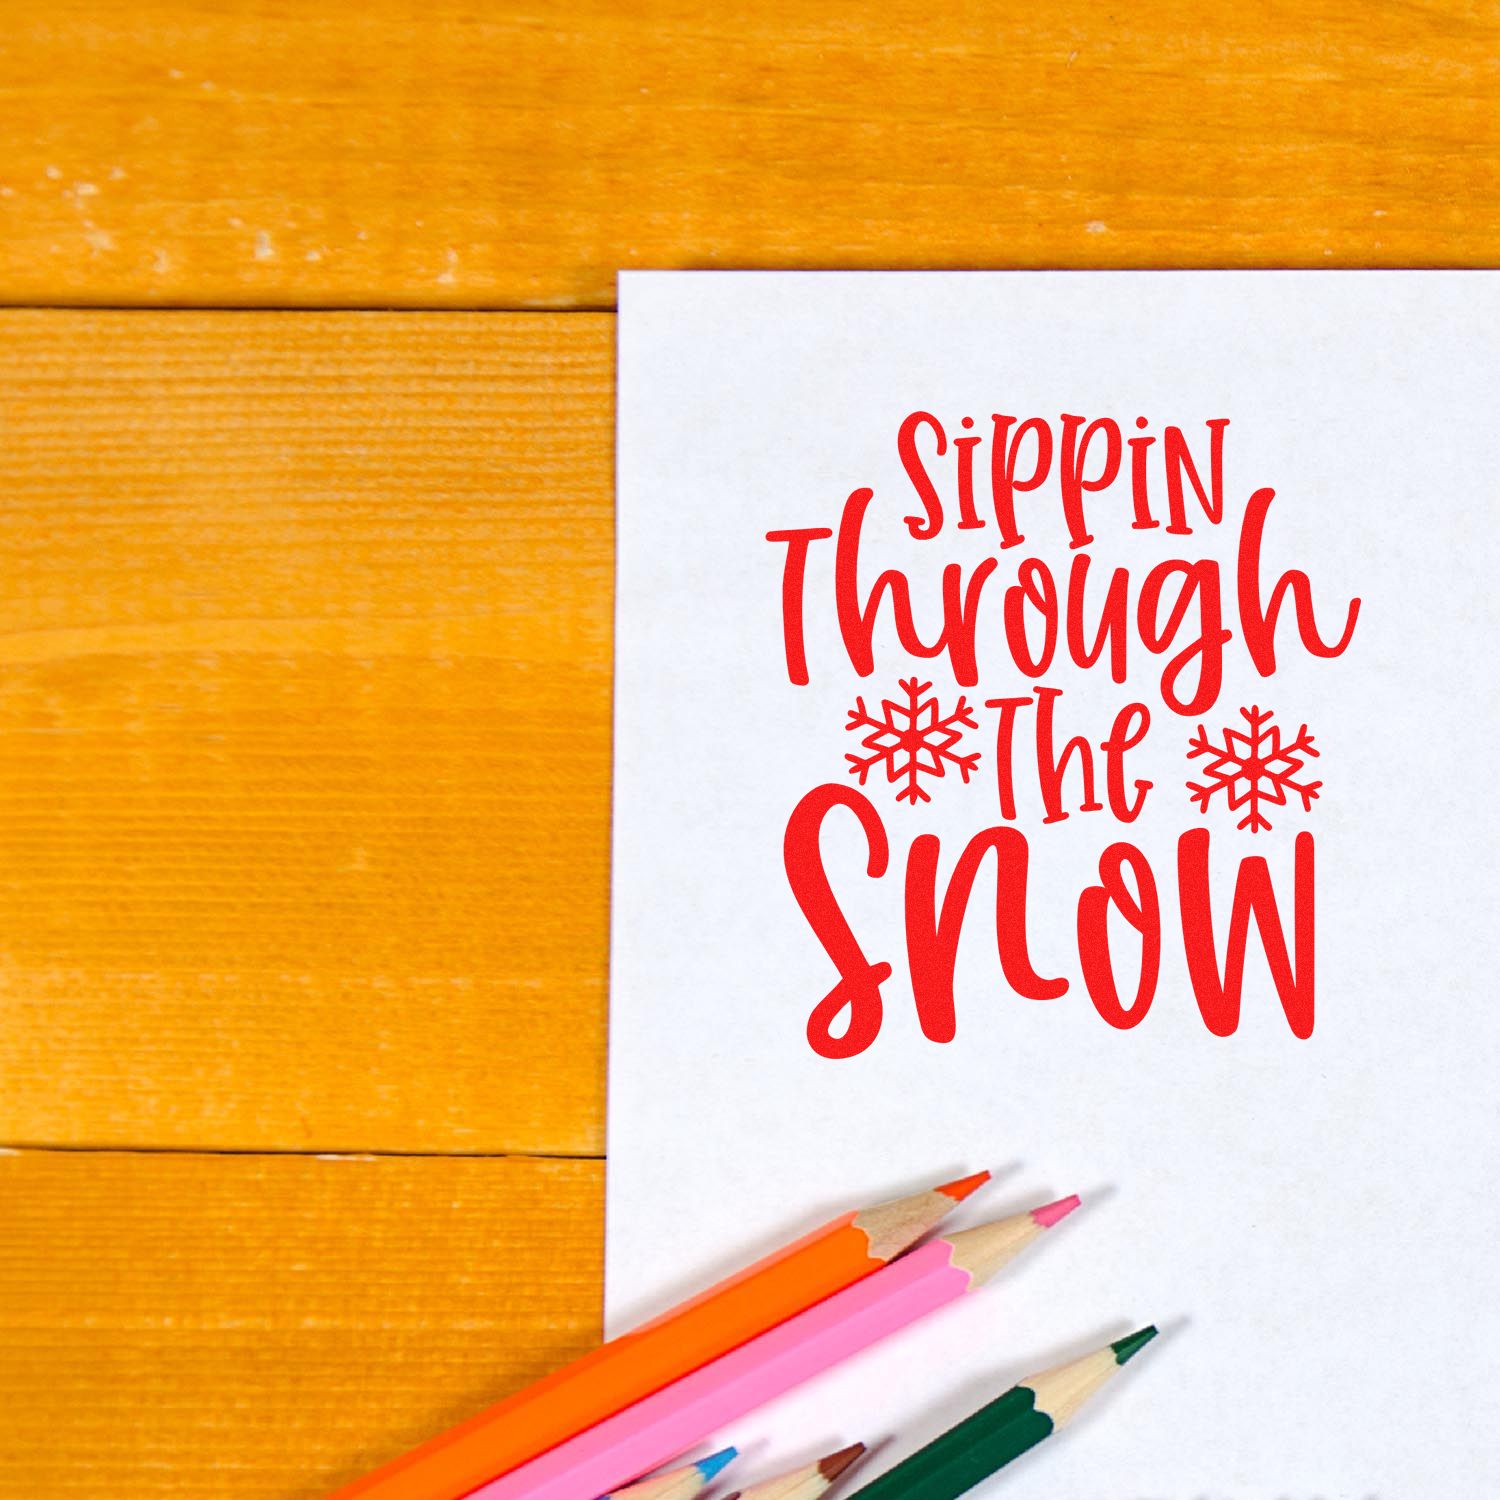 SiPPiN
Through
The
Snow